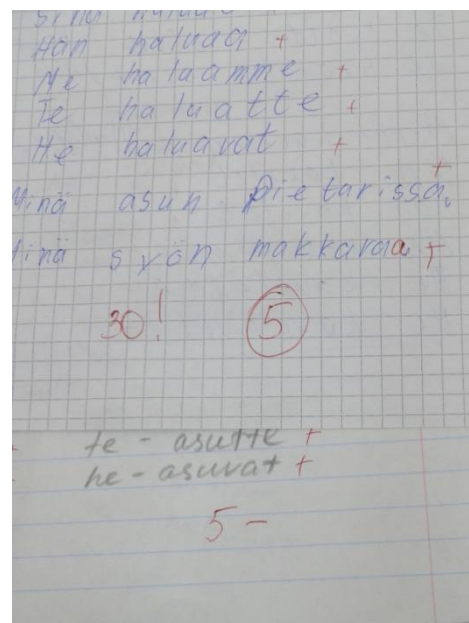 Sinä haluat
Hän haluaa +
Me haluamme +
Te haluatte +
He haluavat +
Minä asun Pietarissa. +
Minä syön makkaraa +
30! 5
te - asutte +
he - asuvat +
5 -